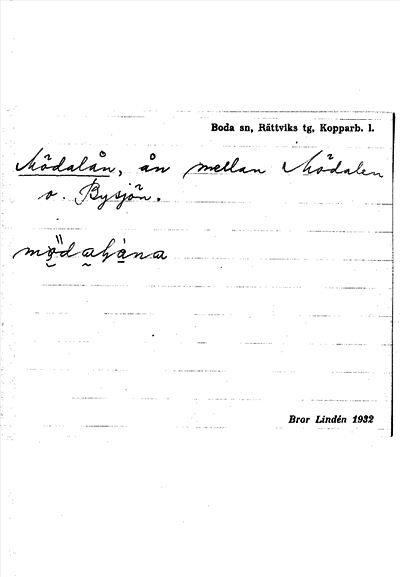 Boda sn, Rättviks tg, Kopparb. l.
Mödalån, ån mellan Mödalen
o. Bysjön.
Bror Lindén 1932